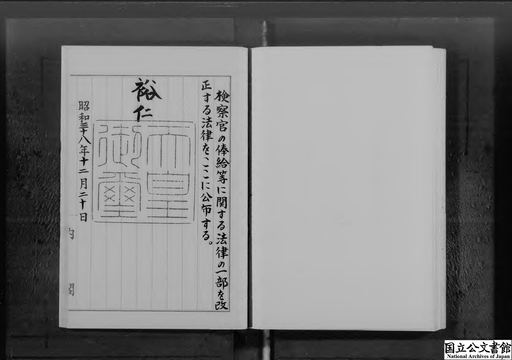 検察官の俸給等に関する法律の一部を改
正する法律を、ここに公布する。
裕仁
天皇
御璽
昭和三十八年十二月二十日
国立公文書館
National Archives of Japan